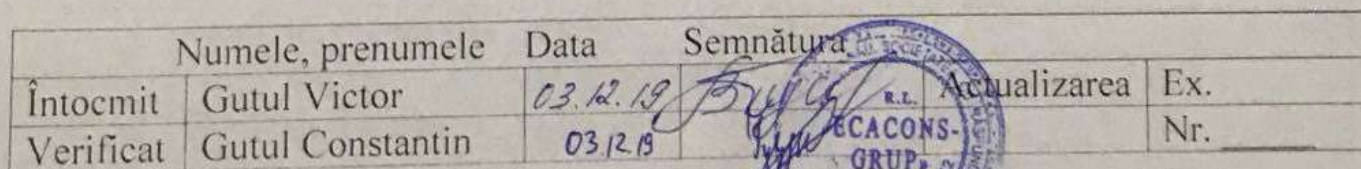 Numele, prenumele Data Semnătura
Întocmit Gutul Victor 03.12.19 Actualizarea Ex.
Verificat Gutul Constantin 03.12.19 Nr. ______
R.L.
ECACONS-
GRUP